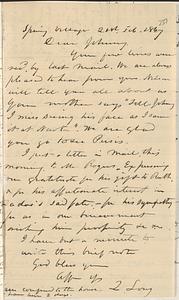 Spring Cottage 21st Feb. 1869
Dear Johnny
Your few lines were
recd by last Mail. We are always
pleased to hear from you. Nelson
will tell you all about us
Your mother says "Tell Johnny
I miss seeing his face as I came
We are glad
you go to see
I put a letter in Mail this
morning to Mr Rogers. Expressing
our gratitude for his gift to Ruth
& for his affectionate interest in
& for his sympathy
for us in our bereavement
wishing him prosperity &c
I have but a minute to
write this brief note
God bless you
Affn yrs
confined to the house. Z Long